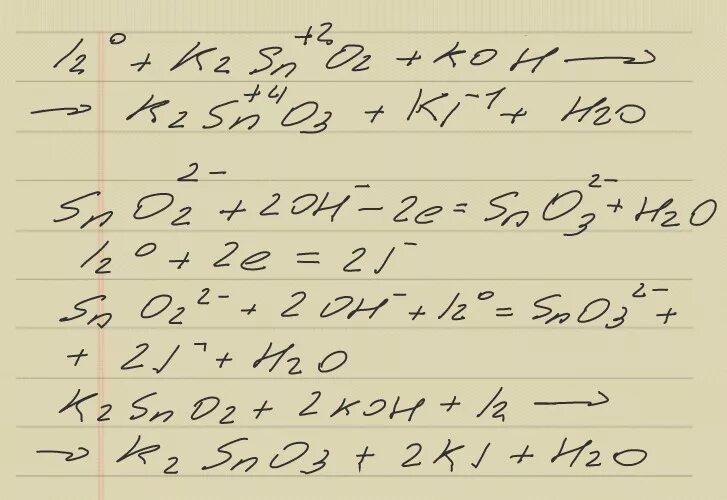 I₂⁰ + K₂Sn⁺²O₂ + KOH ⟶
→ K₂Sn⁺⁴O₃ + KI⁻¹ + H₂O
SnO₂²⁻ + 2OH⁻ - 2e = SnO₃²⁻ + H₂O
I₂⁰ + 2e = 2I⁻
SnO₂²⁻ + 2OH⁻ + I₂⁰ = SnO₃²⁻ +
+ 2I⁻ + H₂O
K₂SnO₂ + 2KOH + I₂ ⟶
→ K₂SnO₃ + 2KI + H₂O